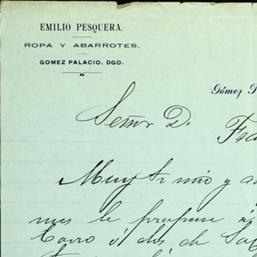 EMILIO PESQUERA.
ROPA Y ABARROTES.
GOMEZ PALACIO. DGO.
Gómez P
Señor D.
Muy Sr mio y a
mes le propuse
Carro ó dos de